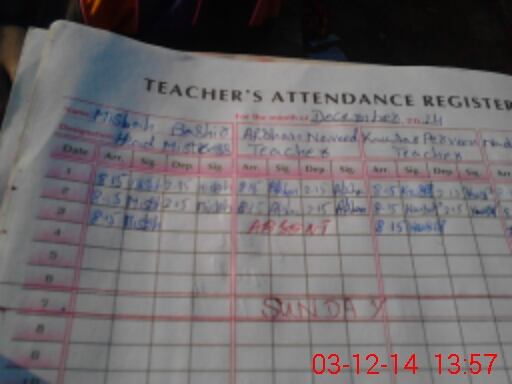 TEACHER'S ATTENDANCE REGISTER
Name Misbah Bashir
For the month of December 2014
Designation Head Mistress
Afshan Naveed
Teacher
Kausar Perveen
Teacher
Date Arr. Sig. Dep. Sig. Arr. Sig. Dep. Sig. Arr. Sig. Dep. Sig. Arr.
1 8:15 2:15 8:15 2:15 8:15 2:15
2 8:15 Misbah 2:15 Misbah 8:15 2:15 8:15 2:15
3 8:15 Misbah ABSENT 8:15
4
5
6
7 SUNDAY
8
9
10
03-12-14 13:57